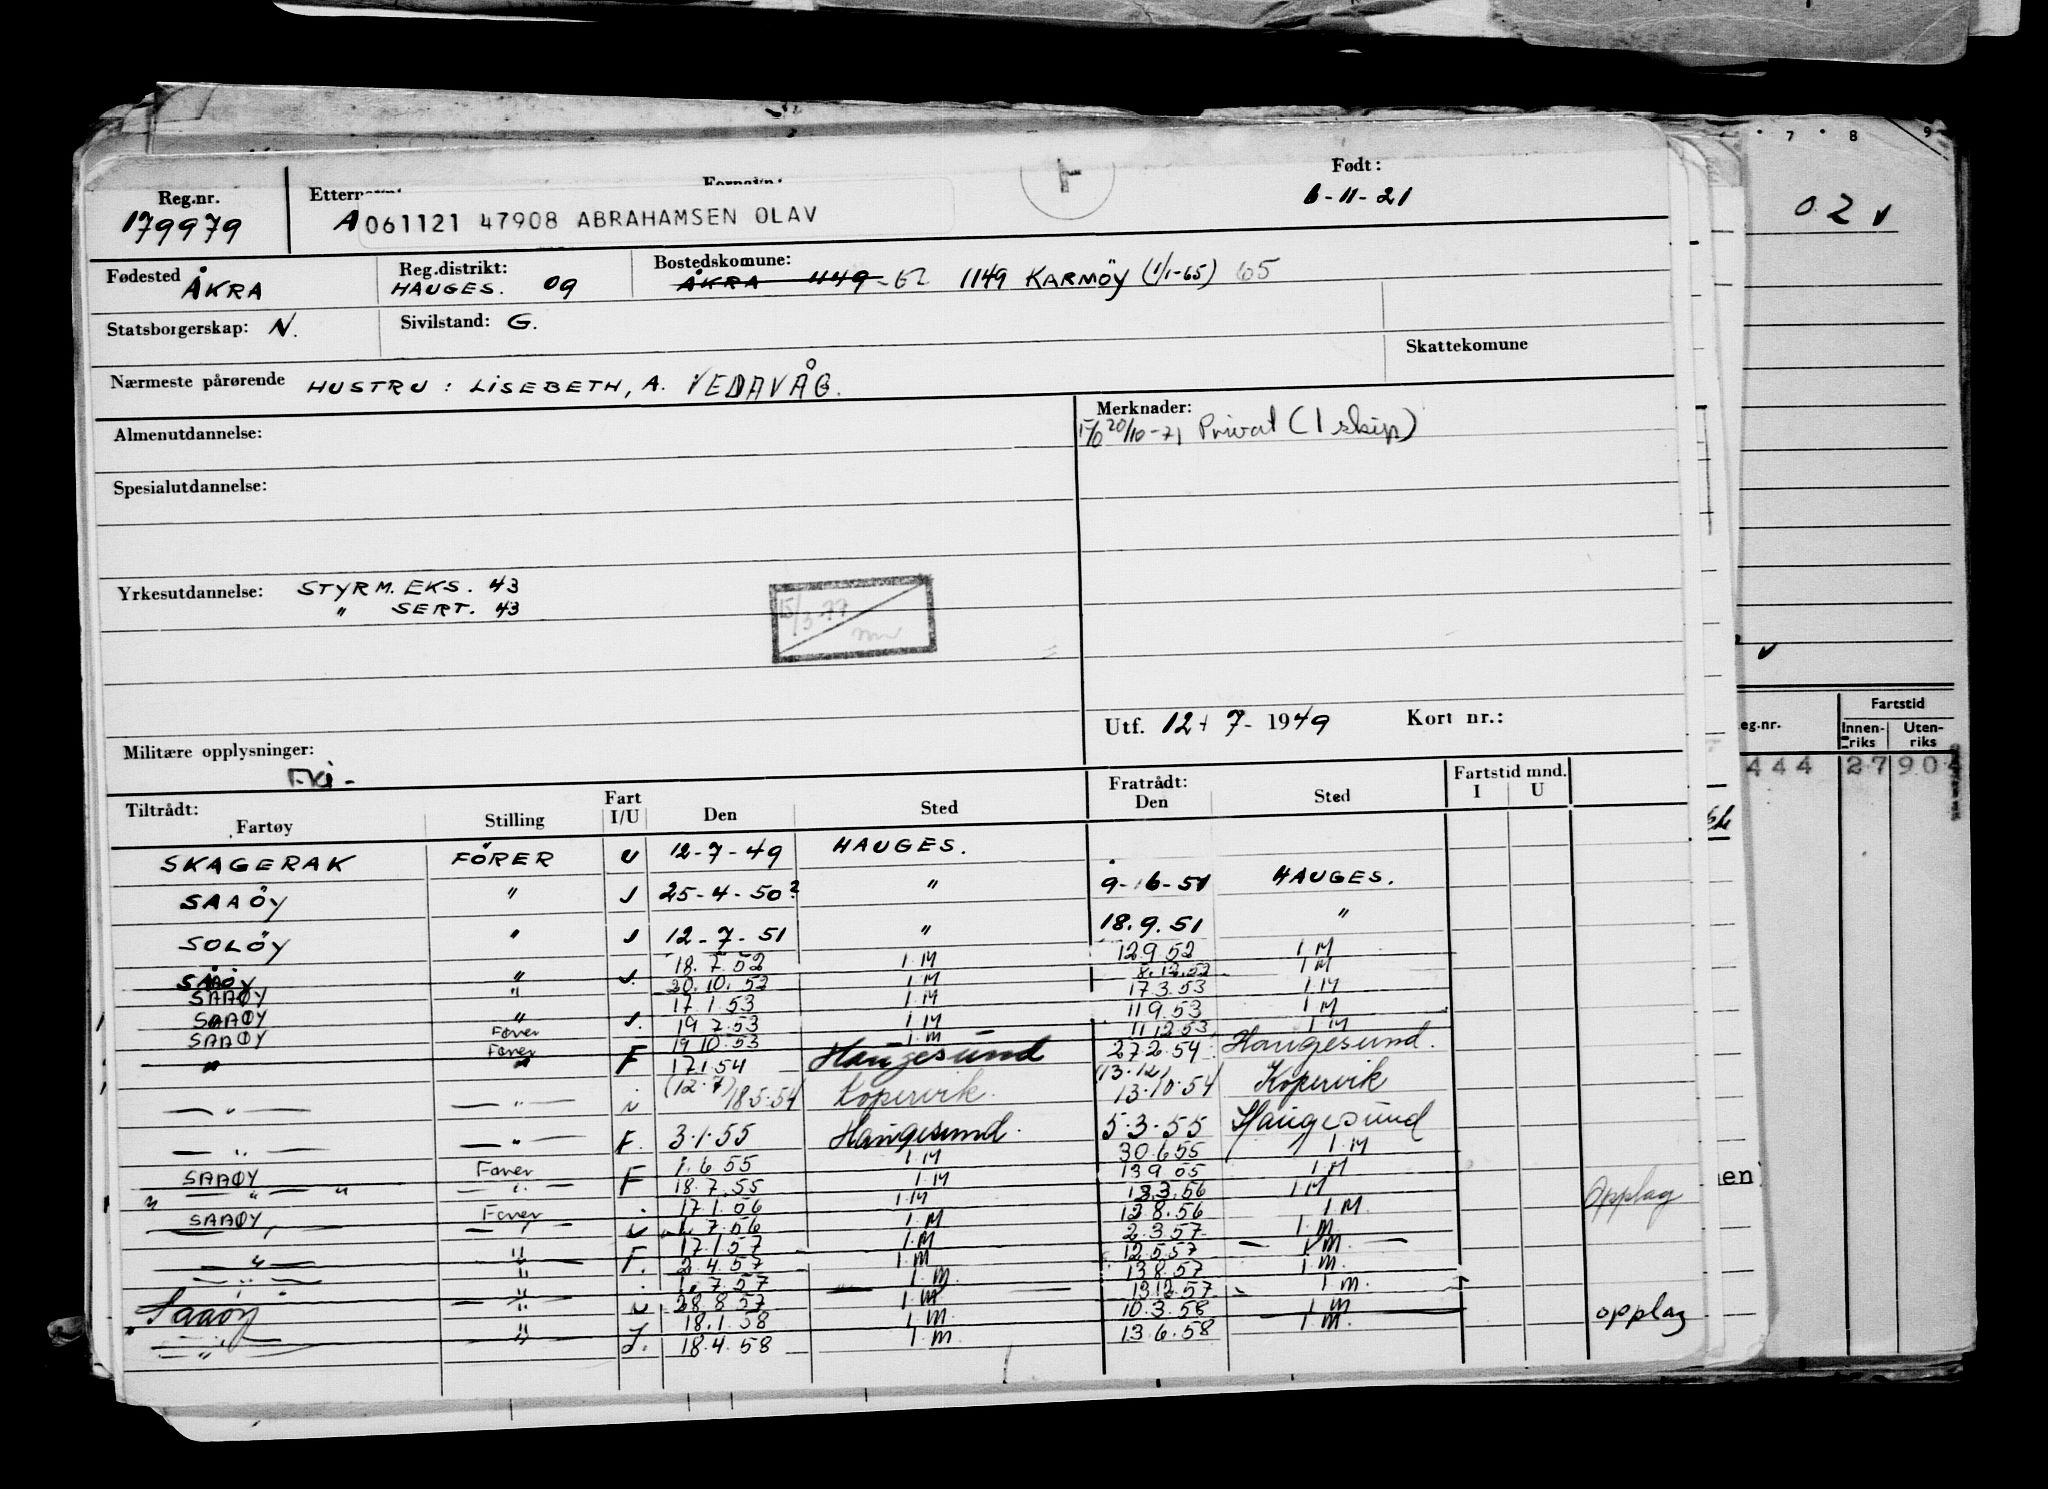 7 8 9
Reg.nr. Født:
179979 A 061121 47908 ABRAHAMSEN OLAV 6-11-21
0 2 v
Fødested ÅKRA Reg.distrikt: HAUGES. 09 Bostedskomune: ÅKRA 1149-62 1149 KARMÖY (1/1-65) 65
Statsborgerskap: N. Sivilstand: G.
Skattekomune
Nærmeste pårørende HUSTRU: LISEBETH, A. VEDAVÅG.
Almenutdannelse: Merknader:
20/10-71 Privat (1 skip)
Spesialutdannelse:
Yrkesutdannelse: STYRM. EKS. 43
" SERT. 43
15/3-77
Utf. 12 - 7 - 1949 Kort nr.:
Militære opplysninger:
Tiltrådt: Fartøy Stilling Fart I/U Den Sted Fratrådt: Den Sted Fartstid mnd. I U
eg.nr. Fartstid Innen-riks Uten-riks
444 27 904
SKAGERAK FÖRER U 12-7-49 HAUGES.
SAAÖY " 25-4-50? " 9-6-51 HAUGES.
SOLÖY " 12-7-51 " 18.9.51 "
SAAÖY " 18.7.52 I.M 12.9.52 I M
SAAØY " 30.10.52 I.M 8.12.52 I M
17.1.53 I.M 17.3.53 I.M
SAAØY " 19.7.53 I.M 11.9.53 I M
SAAØY Fører 19.10.53 I.M 11.12.53 I M
" Fører F 17.1.54 Haugesund 27.2.54 Haugesund.
" " (12.7) 18.5.54 Kopervik. (13.12) 13.10.54 Kopervik
" " F. 3.1.55 Haugesund. 5.3.55 Haugesund
SAAØY Fører F 1.6.55 I.M 30.6.55 I.M
" " 18.7.55 I.M 13.9.55 I M
SAAØY Fører 17.1.56 I.M 13.3.56 I M Opplag
" 7.56 I.M 12.8.56 I M.
" " F. 17.1.57 I.M 2.3.57 I.M
" " 2.4.57 I.M 12.5.57 I M.
" 1.7.57 I M. 13.8.57 I M.
Saaøy " 28.8.57 I M 13.12.57 I M.
18.1.58 I M 10.3.58 I M opplag
" " 18.4.58 I M. 13.6.58 I M.